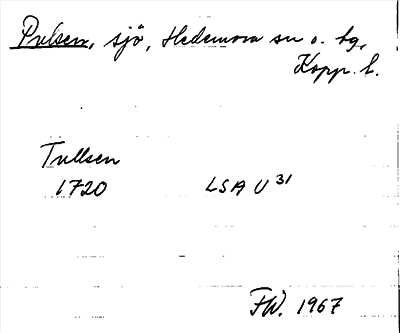 Pulsen, sjö, Hedemora sn o. hg,
Kopp. l.
Tullsen
1720 LSA U 31
FW. 1967